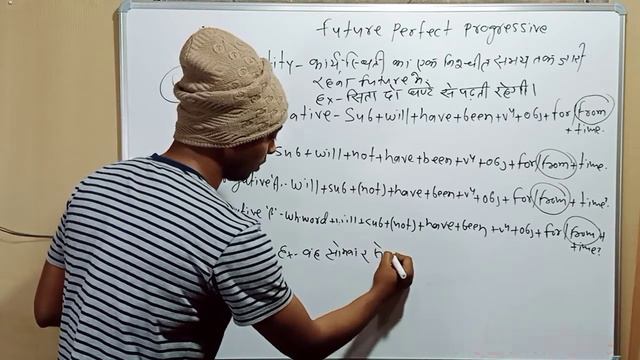 Future Perfect Progressive
lity - कार्य/स्थिती का एक निश्चीत समय तक जारी
रहना Future में
Ex - सिता दो घण्टे से पढ़ती रहेगी।
ative - Sub + will + have + been + v⁴ + obj + for/from + time.
Sub + will + not + have + been + v⁴ + obj + for/from + time.
gative 'A' - will + sub + (not) + have + been + v⁴ + obj + for/from + time?
ative 'B' - wh word + will + sub + (not) + have + been + v⁴ + obj + for/from + time?
Ex - वह सोमवार से